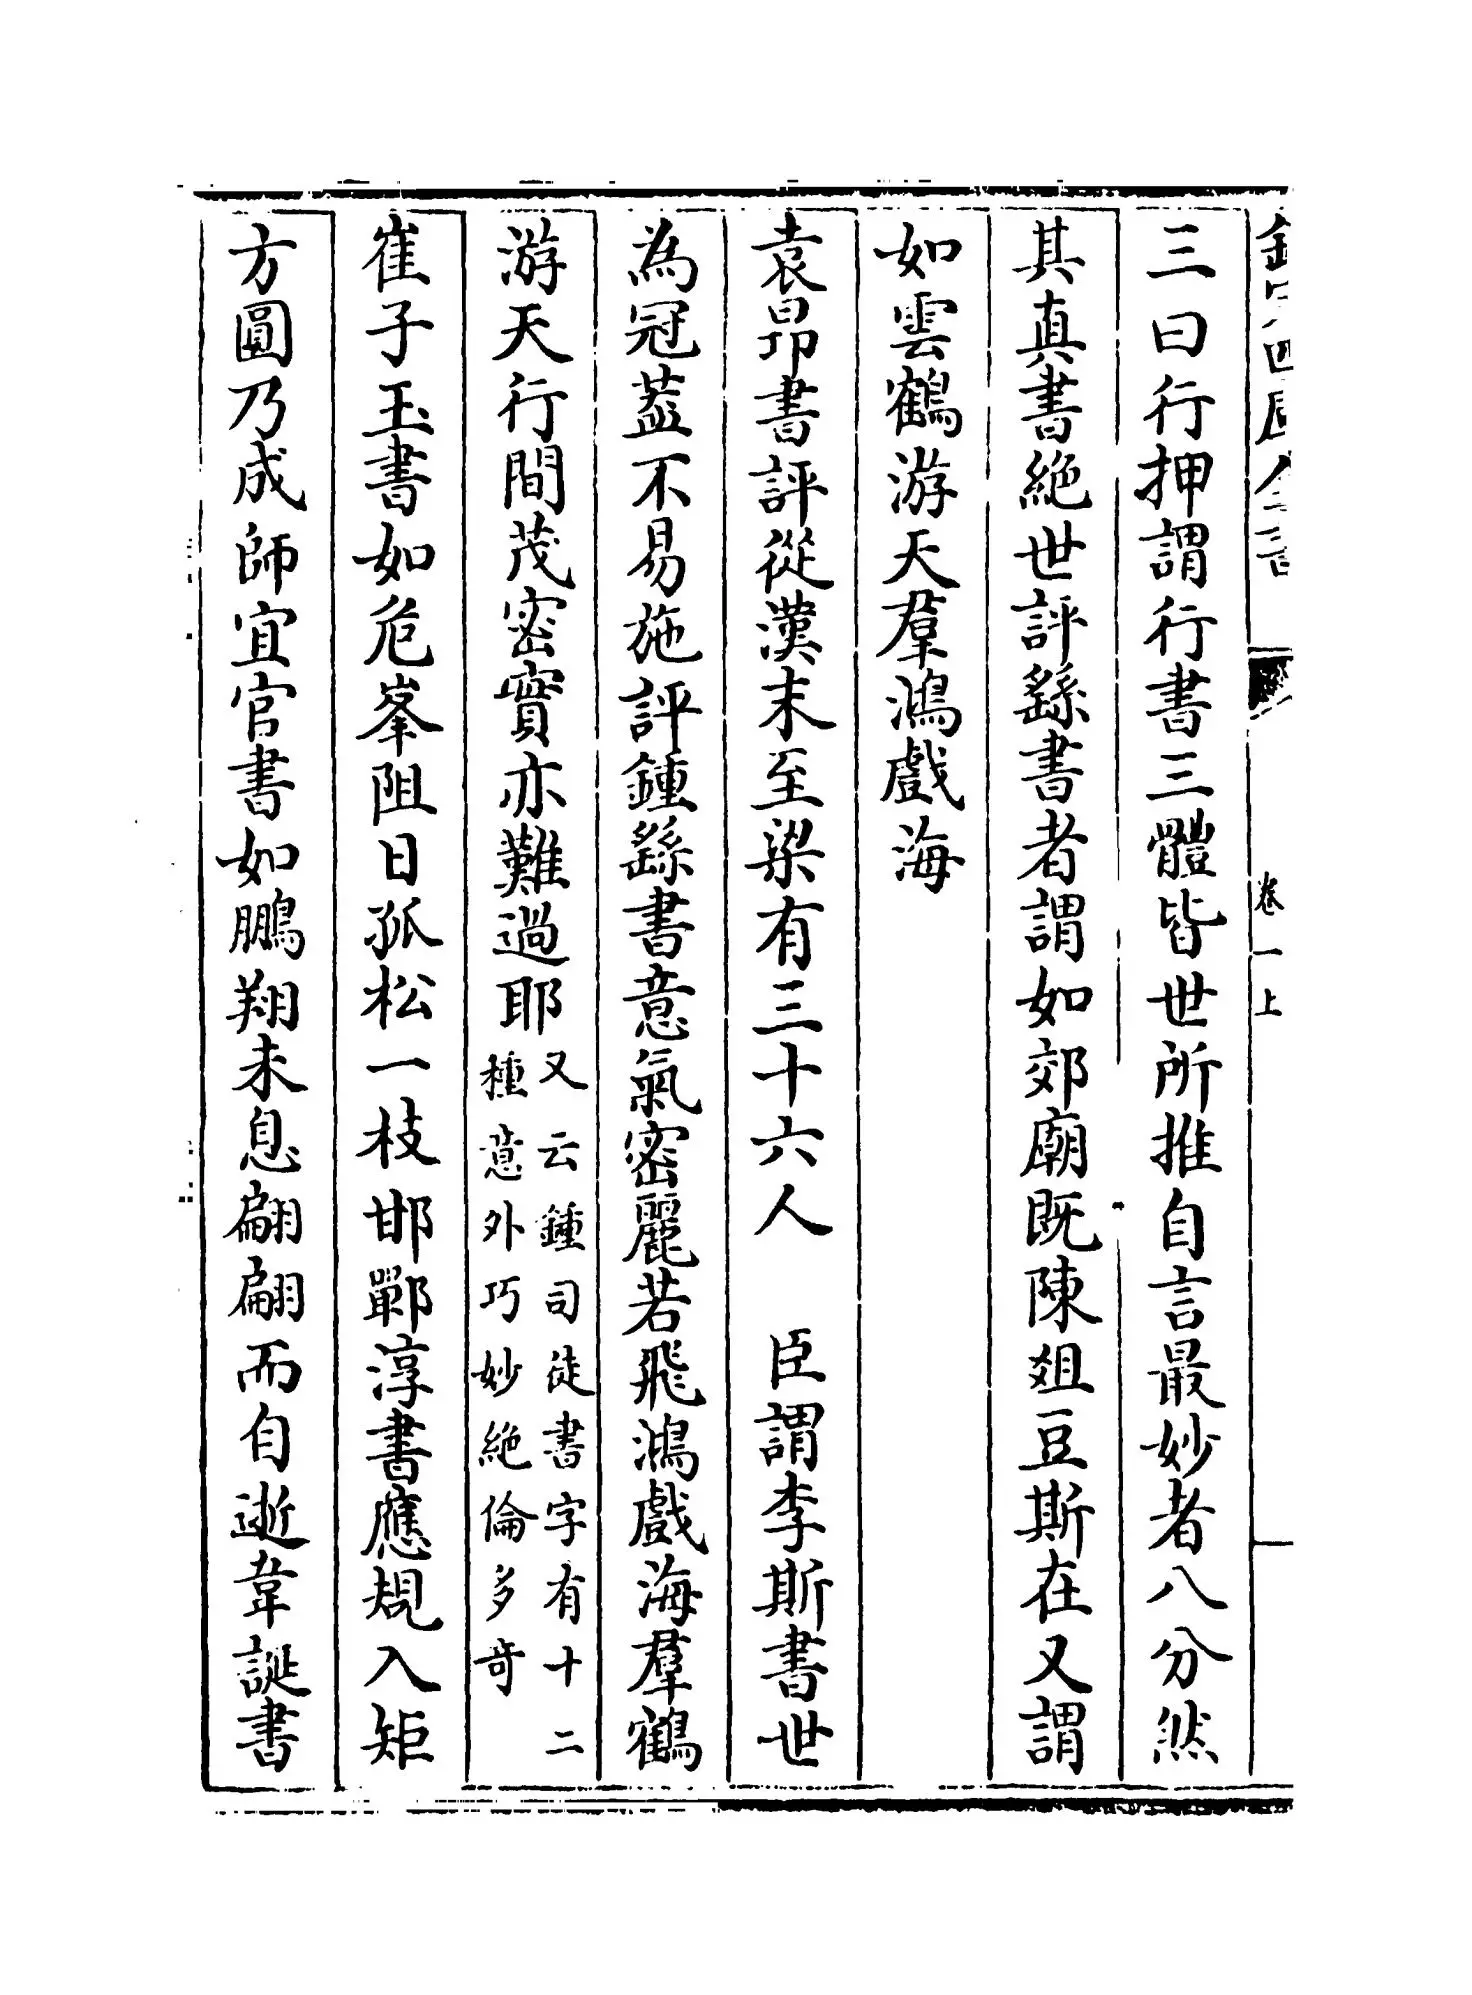 欽定四庫全書
卷一上
三曰行押謂行書三體皆世所推自言最妙者八分然
其真書絶世評繇書者謂如郊廟既陳爼豆斯在又謂
如雲鶴游天羣鴻戲海
袁昻書評從漢末至梁有三十六人　臣謂李斯書世
為冠葢不易施評鍾繇書意氣密麗若飛鴻戲海羣鶴
游天行間茂密實亦難過耶又云鍾司徒書字有十二種意意外巧妙絶倫多奇
崔子玉書如危峯阻日孤松一枝邯鄲淳書應規入矩
方圓乃成師宜官書如鵬翔未息翩翩而自逝韋誕書